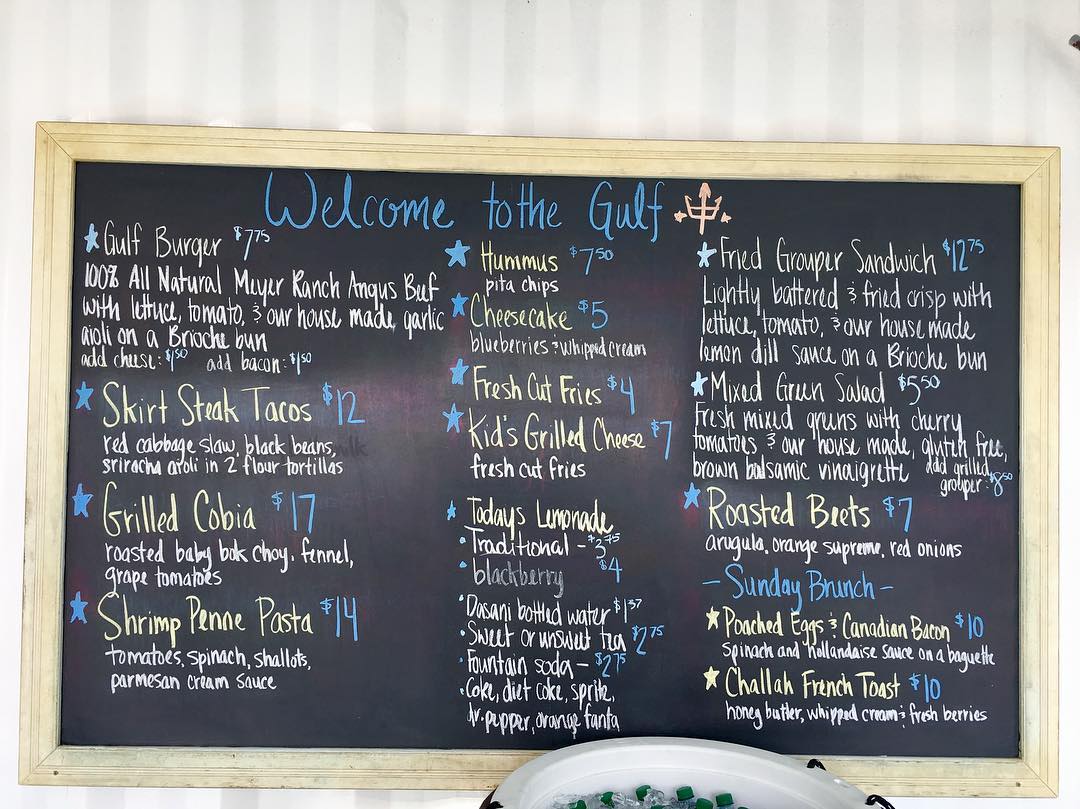 Welcome to the Gulf
Gulf Burger $7.75
100% All Natural Meyer Ranch Angus Beef
with lettuce, tomato, & our house made garlic
aioli on a Brioche bun
add cheese: $1.50 add bacon: $1.50
Skirt Steak Tacos $12
red cabbage slaw, black beans,
sriracha aioli in 2 flour tortillas
Grilled Cobia $17
roasted baby bok choy, fennel,
grape tomatoes
Shrimp Penne Pasta $14
tomatoes, spinach, shallots,
parmesan cream sauce
Hummus $7.50
pita chips
Cheesecake $5
blueberries & whipped cream
Fresh Cut Fries $4
Kid's Grilled Cheese $7
fresh cut fries
Today's Lemonade
Traditional - $3.75
blackberry $4
Dasani bottled water $1.37
Sweet or unsweet tea $2.75
Fountain soda - $2.75
Coke, diet coke, sprite,
dr. pepper, orange fanta
Fried Grouper Sandwich $12.75
Lightly battered & fried crisp with
lettuce, tomato, & our house made
lemon dill sauce on a Brioche bun
Mixed Green Salad $5.50
Fresh mixed greens with cherry
tomatoes & our house made, gluten free,
brown balsamic vinaigrette add grilled
grouper: $8.50
Roasted Beets $7
arugula, orange supreme, red onions
- Sunday Brunch -
Poached Eggs & Canadian Bacon $10
spinach and hollandaise sauce on a baguette
Challah French Toast $10
honey butter, whipped cream & fresh berries